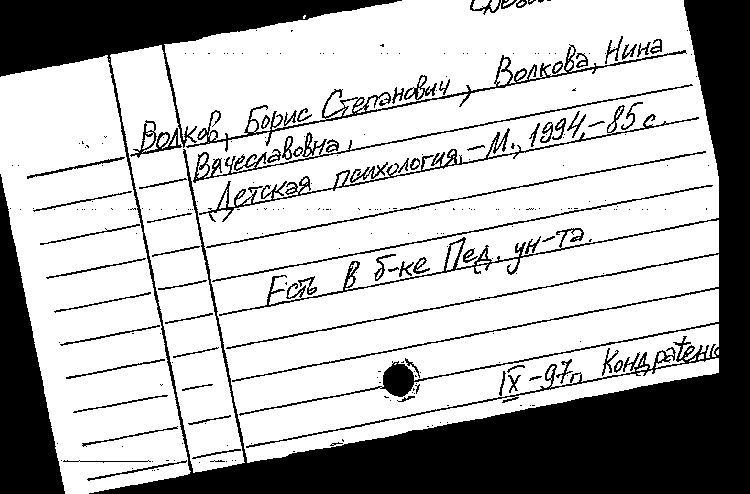 Волков, Борис Степанович, Волкова, Нина
Вячеславовна,
Детская психология.-М., 1994.-85 с.
Есть в б-ке Пед. ун-та.
IX-97г. Кондратенк